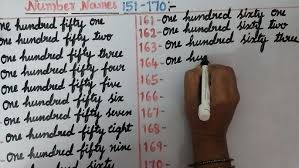 Number Names 151-170:-
one hundred fifty one
one hundred fifty two
one hundred fifty three
one hundred fifty four
one hundred fifty five
one hundred fifty six
one hundred fifty seven
one hundred fifty eight
one hundred fifty nine
one hundred sixty
161- one hundred sixty one
162- one hundred sixty two
163- one hundred sixty three
164- one hu
165-
166-
167-
168-
169-
170-